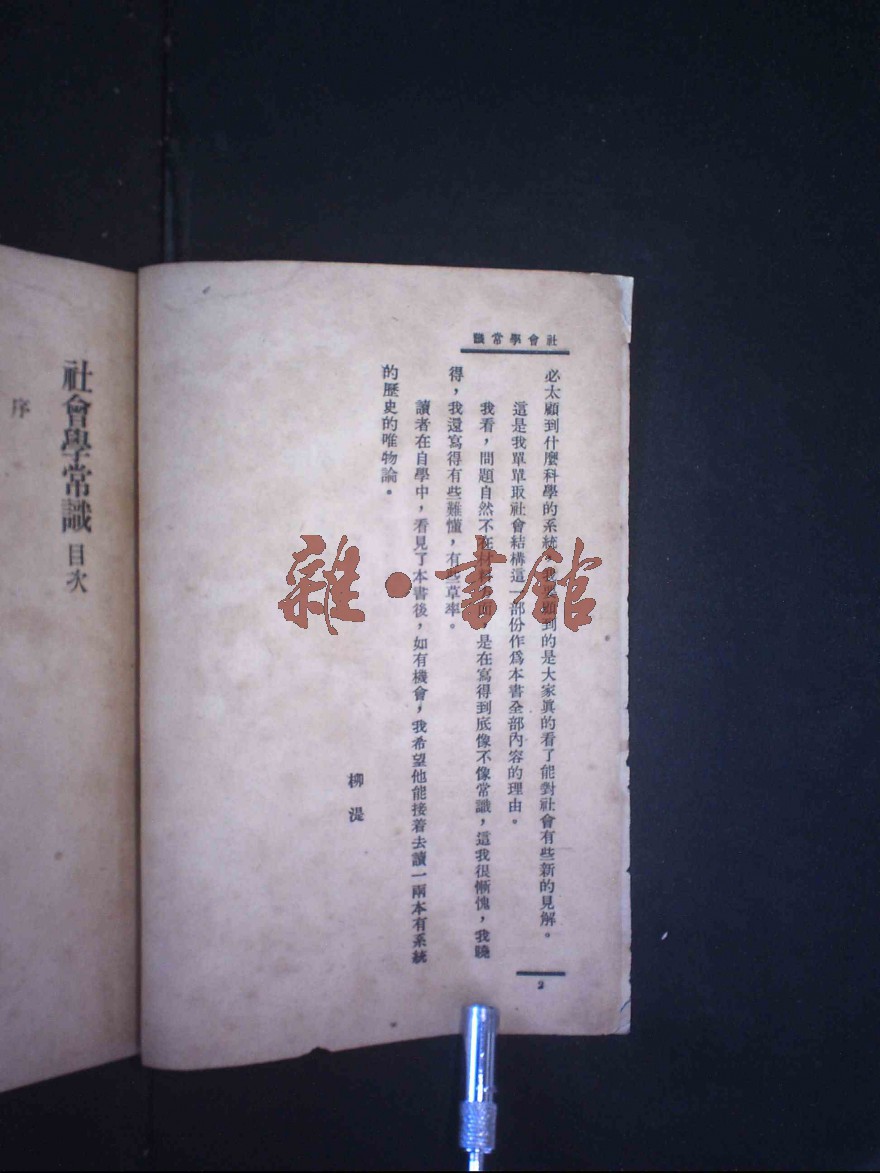 社會學常識
必太顧到什麼科學的系統，我顧到的是大家眞的看了能對社會有些新的見解。
這是我單單取社會結構這一部份作爲本書全部內容的理由。
我看，問題自然不在材料方面，是在寫得到底像不像常識，這我很慚愧，我曉
得，我還寫得有些難懂，有些草率。
讀者在自學中，看見了本書後，如有機會，我希望他能接着去讀一兩本有系統
的歷史的唯物論。
柳湜
2
社會學常識 目次
序
雜·書館